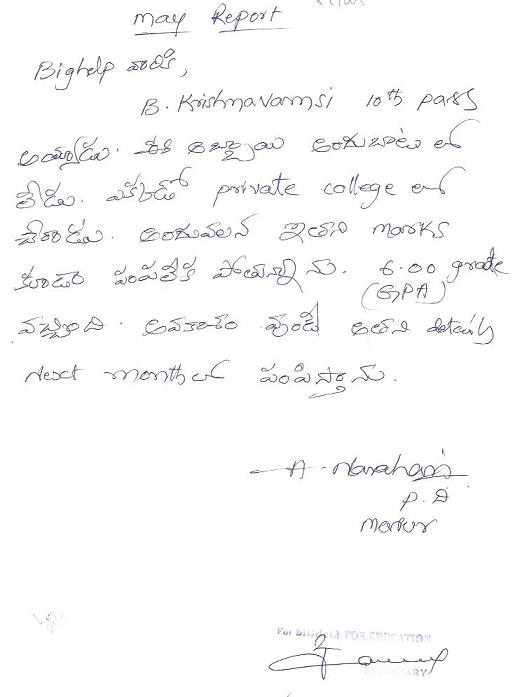 May Report
Bighelp వారికి,
B. Krishnavamsi 10th pass
అయ్యాడు. ఈ అబ్బాయి అందుబాటు లో
లేడు. ఎక్కడో private college లో
చేరాడు. అందువలన ఇతని marks
కూడా పంపలేక పోతున్నాను. 6.00 grade
(GPA)
వచ్చింది. అవకాశం వుండి అతని details
Next month లో పంపిస్తాను.
A. Narahari
P.D
Martur
For BIGHELP FOR EDUCATION
SECRETARY